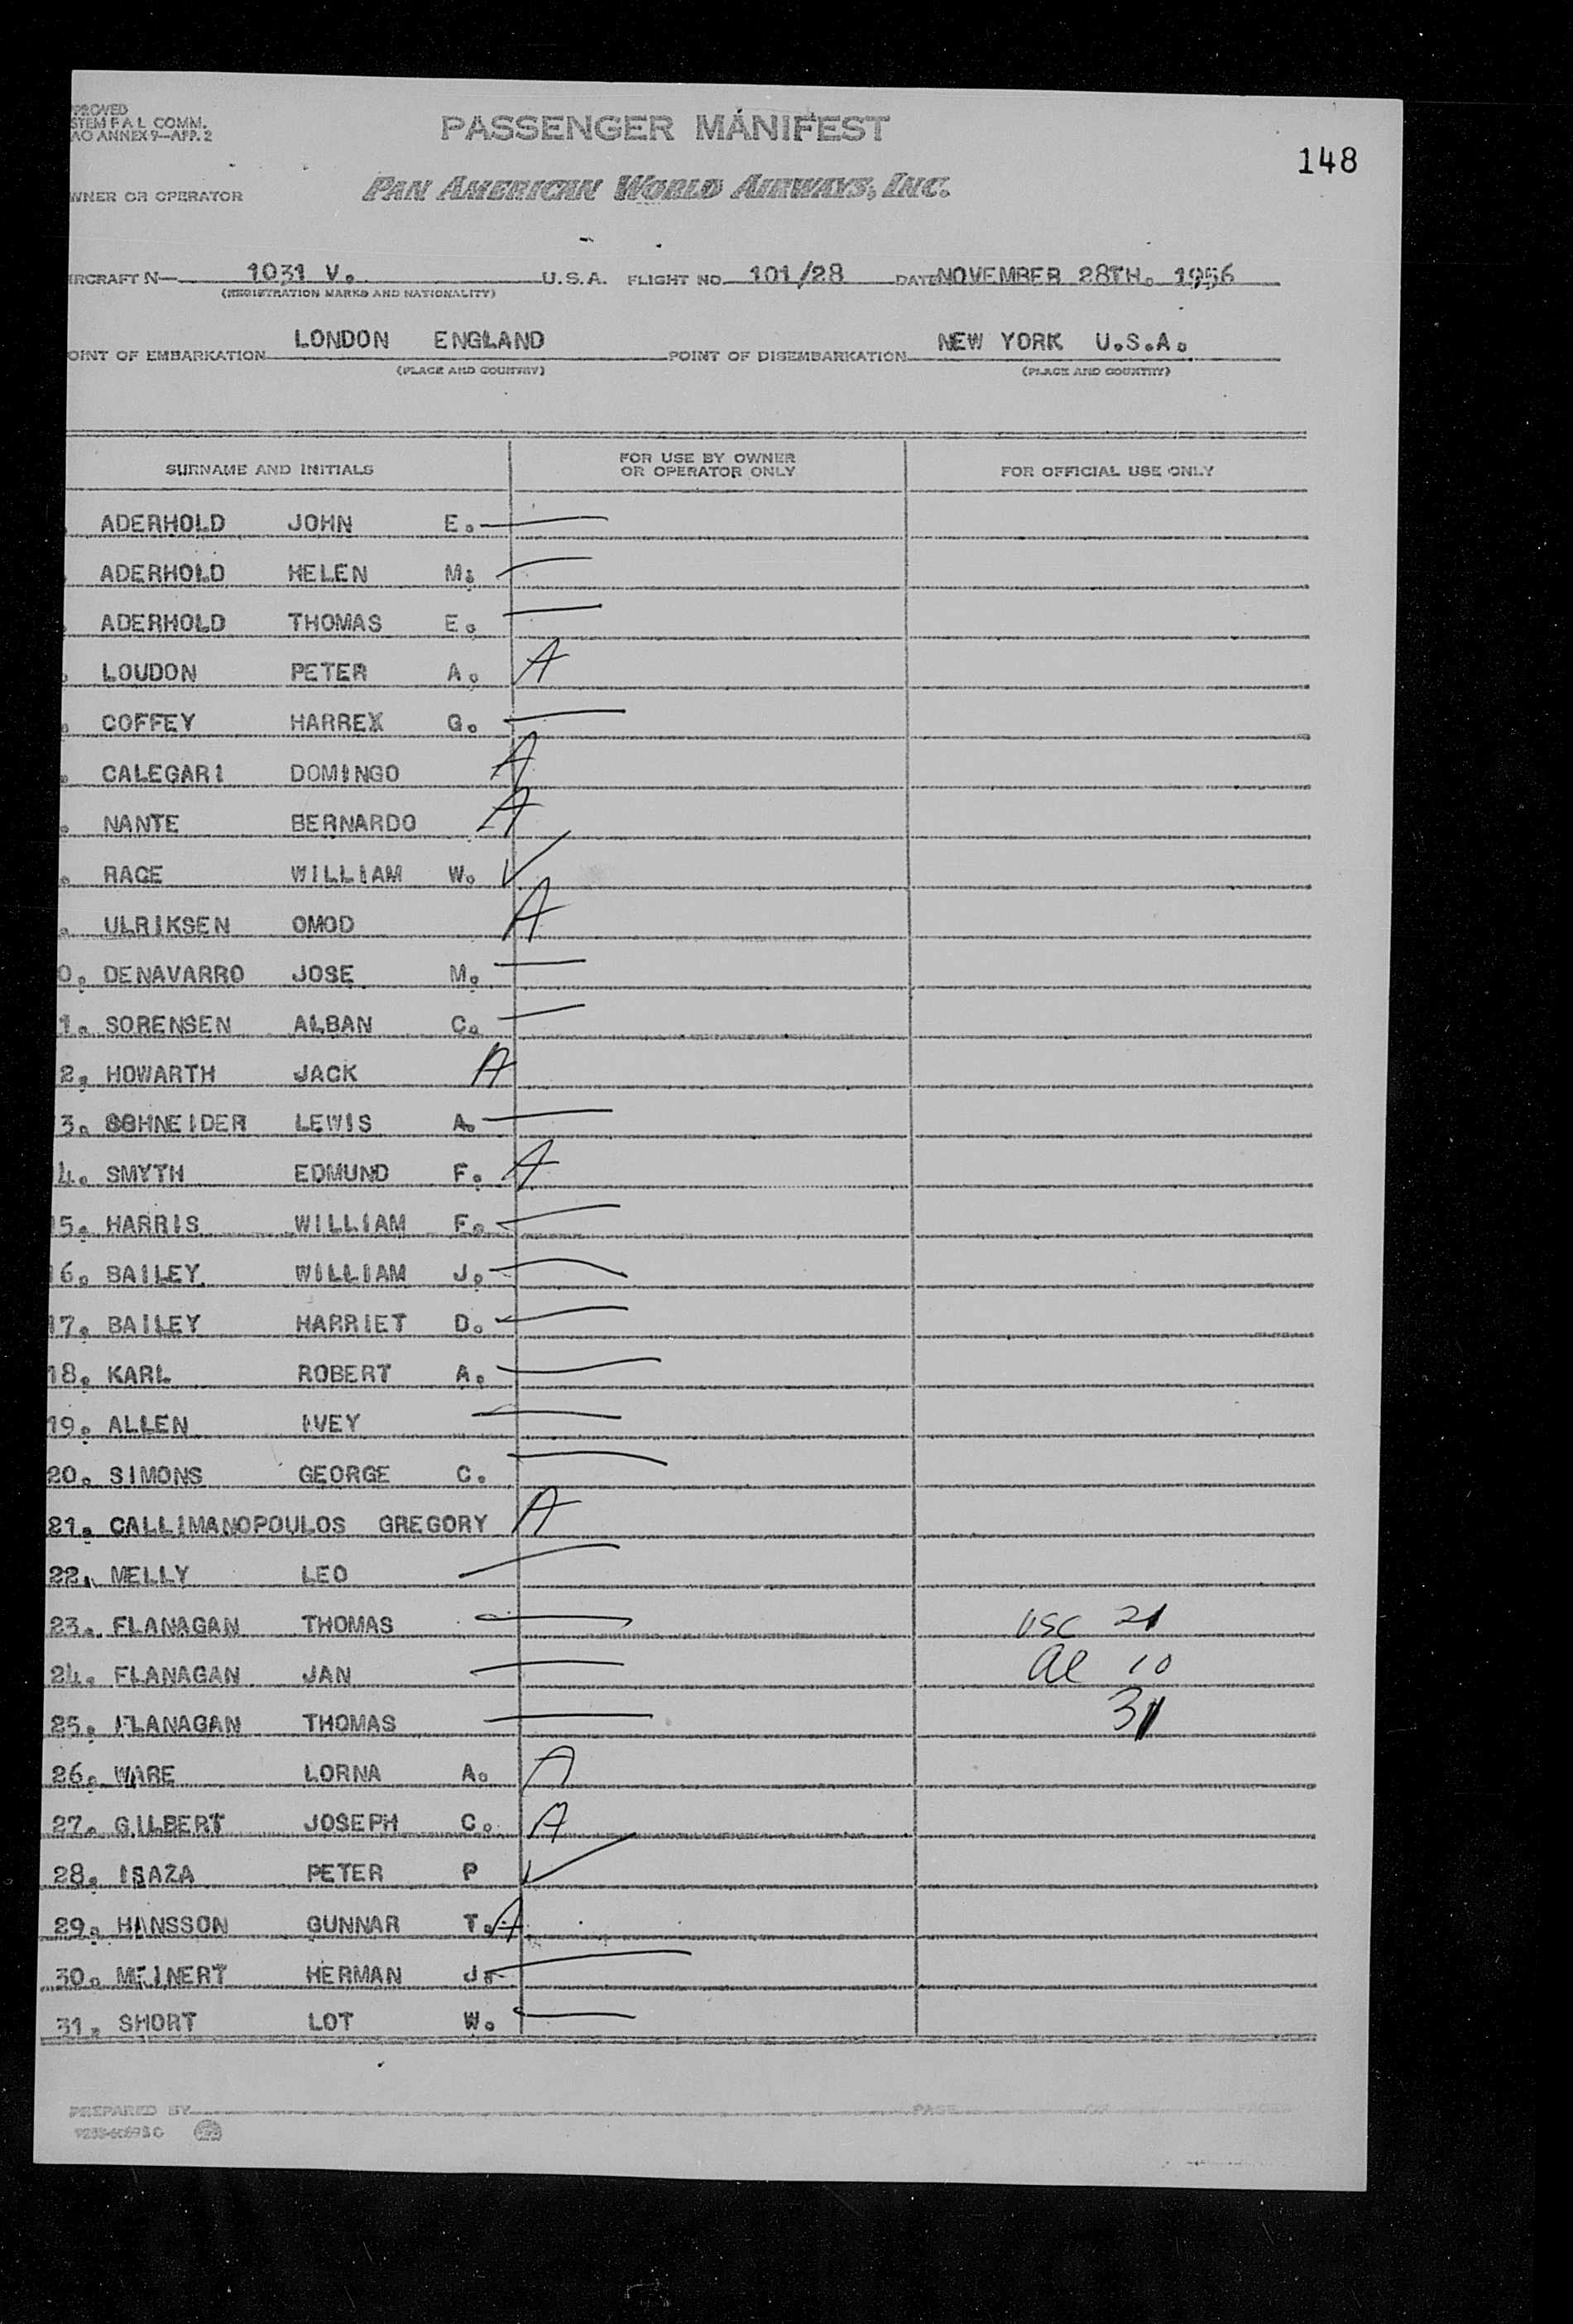 PROVED
STEM F A L COMM.
AO ANNEX 9—APP. 2
PASSENGER MANIFEST
148
WNER OR OPERATOR
PAN AMERICAN WORLD AIRWAYS, INC.
IRCRAFT N— 1031 V. U.S.A. FLIGHT NO. 101/28 DATE NOVEMBER 28TH. 1956
(REGISTRATION MARKS AND NATIONALITY)
OINT OF EMBARKATION LONDON ENGLAND POINT OF DISEMBARKATION NEW YORK U.S.A.
(PLACE AND COUNTRY) (PLACE AND COUNTRY)
SURNAME AND INITIALS FOR USE BY OWNER OR OPERATOR ONLY FOR OFFICIAL USE ONLY
. ADERHOLD JOHN E. —
. ADERHOLD HELEN M. —
. ADERHOLD THOMAS E. —
. LOUDON PETER A. A
. COFFEY HARREX G. —
. CALEGARI DOMINGO A
. NANTE BERNARDO A
. RACE WILLIAM W. ✓
. ULRIKSEN OMOD A
0. DENAVARRO JOSE M. —
1. SORENSEN ALBAN C. —
2. HOWARTH JACK A
3. SCHNEIDER LEWIS A. —
4. SMYTH EDMUND F. A
15. HARRIS WILLIAM F. —
16. BAILEY WILLIAM J. —
17. BAILEY HARRIET D. —
18. KARL ROBERT A. —
19. ALLEN IVEY —
20. SIMONS GEORGE C. —
21. CALLIMANOPOULOS GREGORY A
22. MELLY LEO —
23. FLANAGAN THOMAS — USC 21
24. FLANAGAN JAN — al 10
25. FLANAGAN THOMAS — 31
26. WARE LORNA A. A
27. GILBERT JOSEPH C. A
28. ISAZA PETER P ✓
29. HANSSON GUNNAR T. A
30. MEINERT HERMAN J. —
31. SHORT LOT W. —
PREPARED BY PAGE OF PAGES